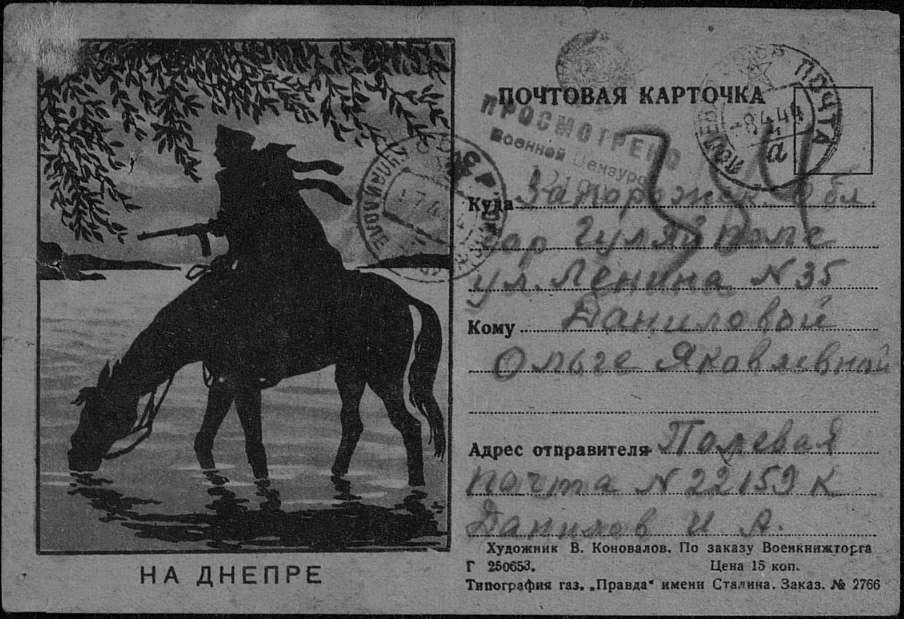 НА ДНЕПРЕ
ПОЧТОВАЯ КАРТОЧКА
ПРОСМОТРЕНО
Военной Цензурой
ПОЛЕВ ПОЧТА
-8.4.44
а
34
Куда Запорожск. Обл.
гор Гуляй поле
ул. Ленина N 35
Кому Даниловой
Ольге Яковлевной
Адрес отправителя Полевая
почта N 22153 К
Данилов И А.
Художник В. Коновалов. По заказу Военкнижторга
Г 250653. Цена 15 коп.
Типография газ. „Правда“ имени Сталина. Заказ. № 2766